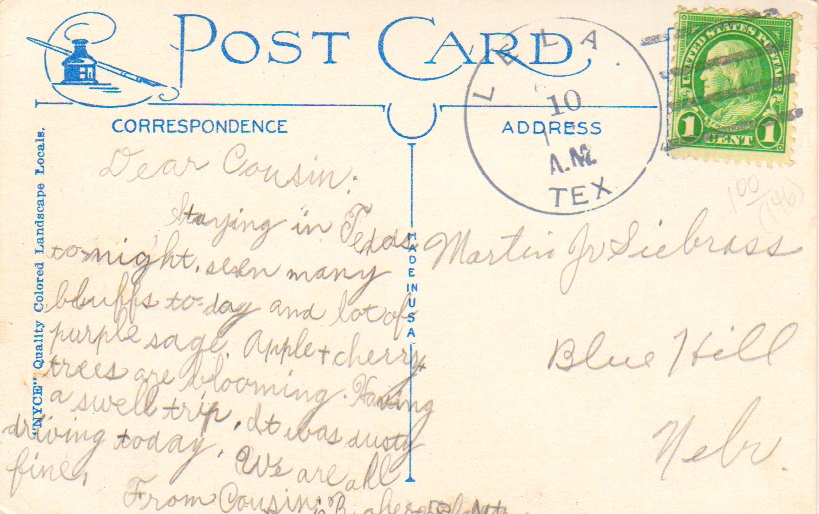 POST CARD
CORRESPONDENCE
ADDRESS
LELA.
10
A.M.
TEX
UNITED STATES POSTAGE
1 CENT 1
"NYCE" Quality Colored Landscape Locals.
MADE IN USA
Dear Cousin;
Staying in Texas
to-night. seen many
bluffs to-day and lot of
purple sage. Apple + cherry
trees are blooming. Having
a swell trip. It was dusty
driving today. We are all
fine.
From Cousin
Martin Jr Siebrass
Blue Hill
Nebr.
100